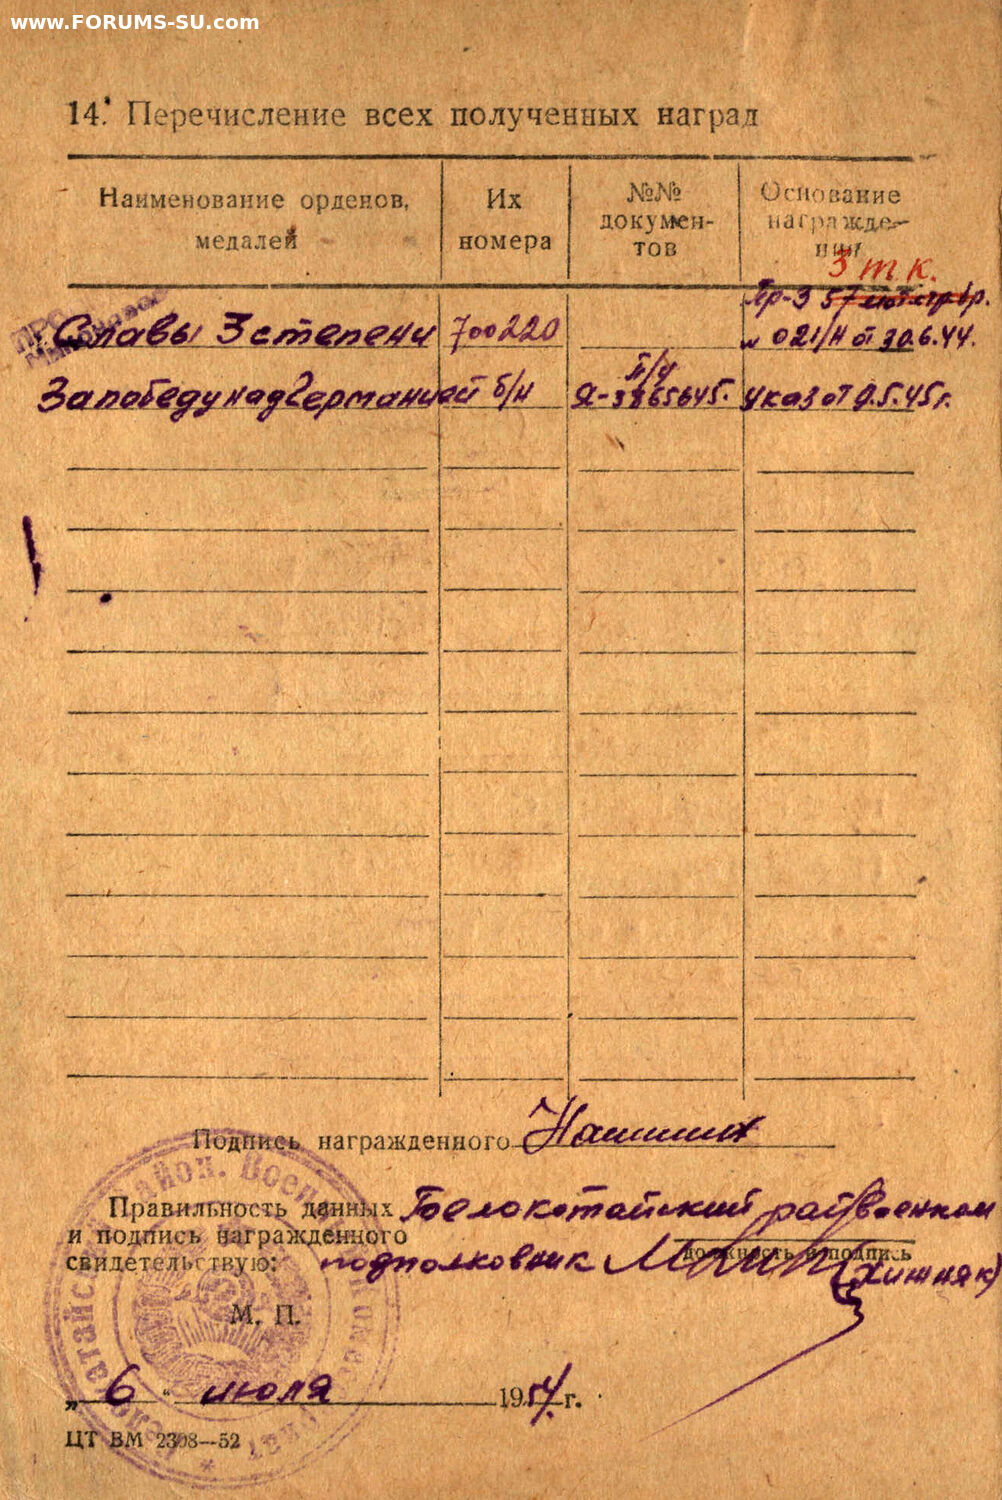 www.FORUMS-SU.com
14. Перечисление всех полученных наград
Наименование орденов, медалей
Их номера
№№ документов
Основание награждения
3 тк.
Славы 3 степени 700220 Пр-з 57
н 021/н от 30.6.44.
За победу над Германией б/н Я-3865645. Указ от 9.5.45 г.
Подпись награжденного
Правильность данных Белокатайский райвоенком
и подпись награжденного
должность и подпись
свидетельствую: подполковник (Хижняк)
М. П.
„6" июля 1954 г.
ЦТ ВМ 2308—52